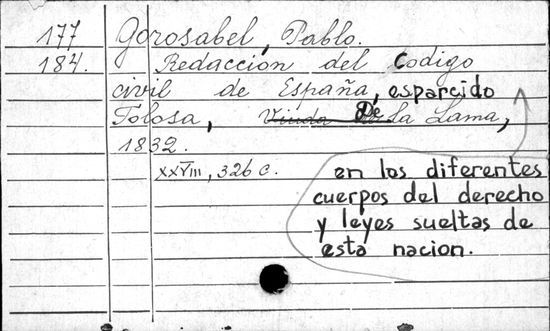 177 Gorosabel, Pablo.
184. Redacción del Codigo
civil de España, esparcido
Tolosa, Viuda De la Lama,
1832.
XXVIII, 326 c. en los diferentes
cuerpos del derecho
y leyes sueltas de
esta nacion.